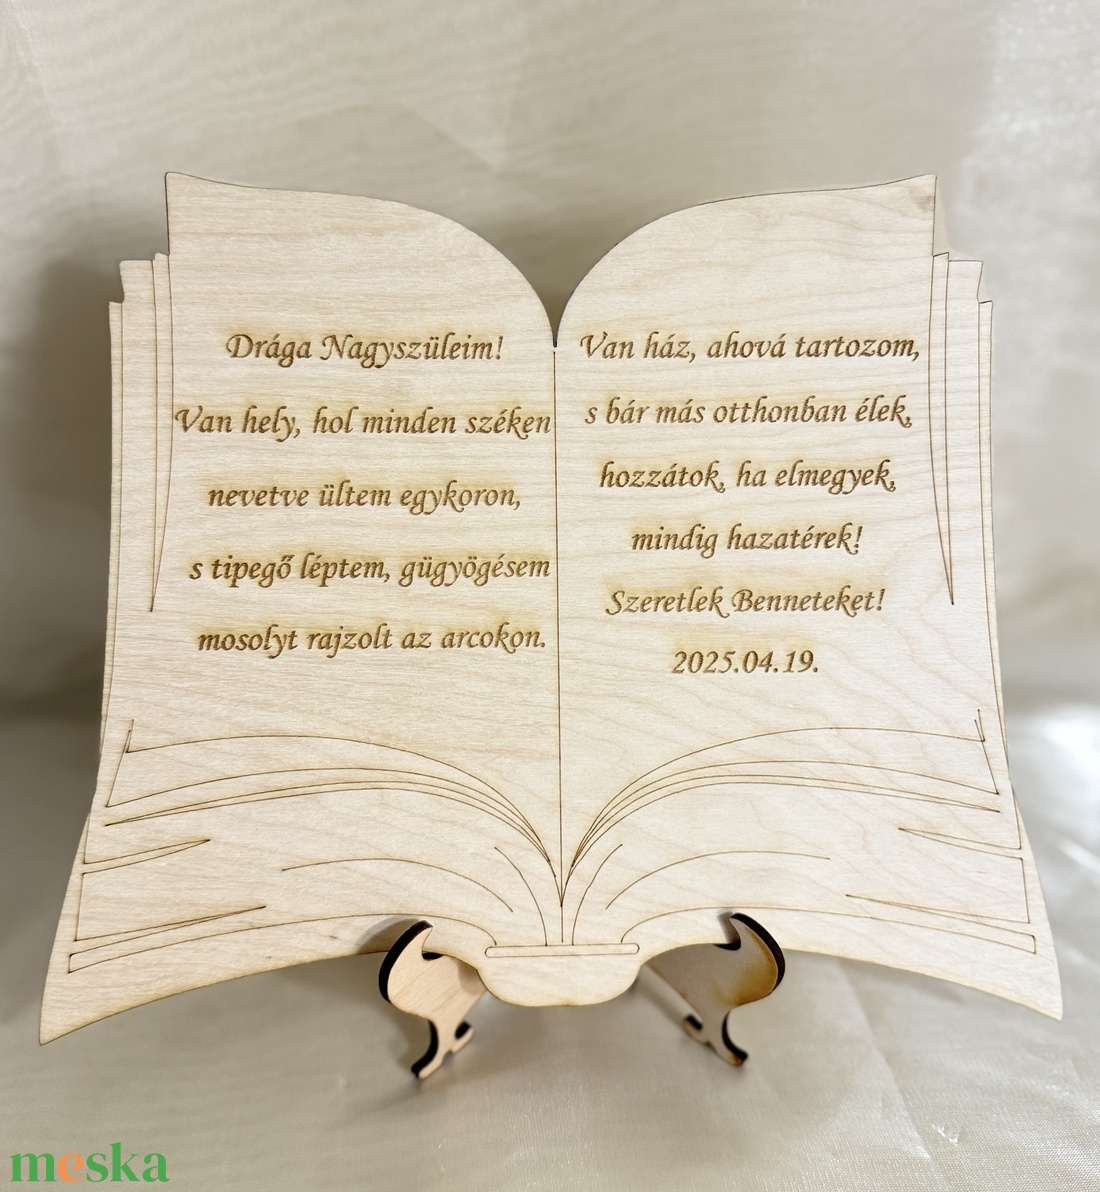 Drága Nagyszüleim!
Van hely, hol minden széken
nevetve ültem egykoron,
s tipegő léptem, gügyögésem
mosolyt rajzolt az arcokon.
Van ház, ahová tartozom,
s bár más otthonban élek,
hozzátok, ha elmegyek,
mindig hazatérek!
Szeretlek Benneteket!
2025.04.19.
meska